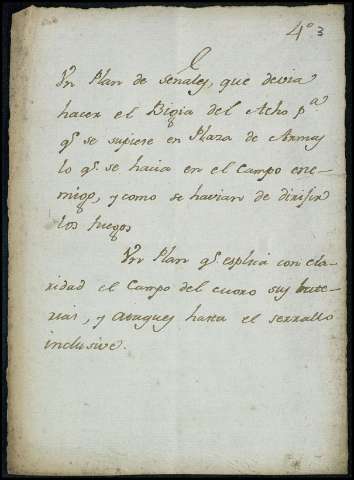 4º 3
Un Plan de señales, que devia
hacer el Bigia del Acho pª
qᵉ se supiese en Plaza de Armas
lo qᵉ se hacia en el Campo ene-
migo, y como se havian de dirijir
los fuegos
Un Plan qᵉ esplica con cla-
ridad el Campo del moro sus bate-
rias, y ataques hasta el serrallo
inclusive.